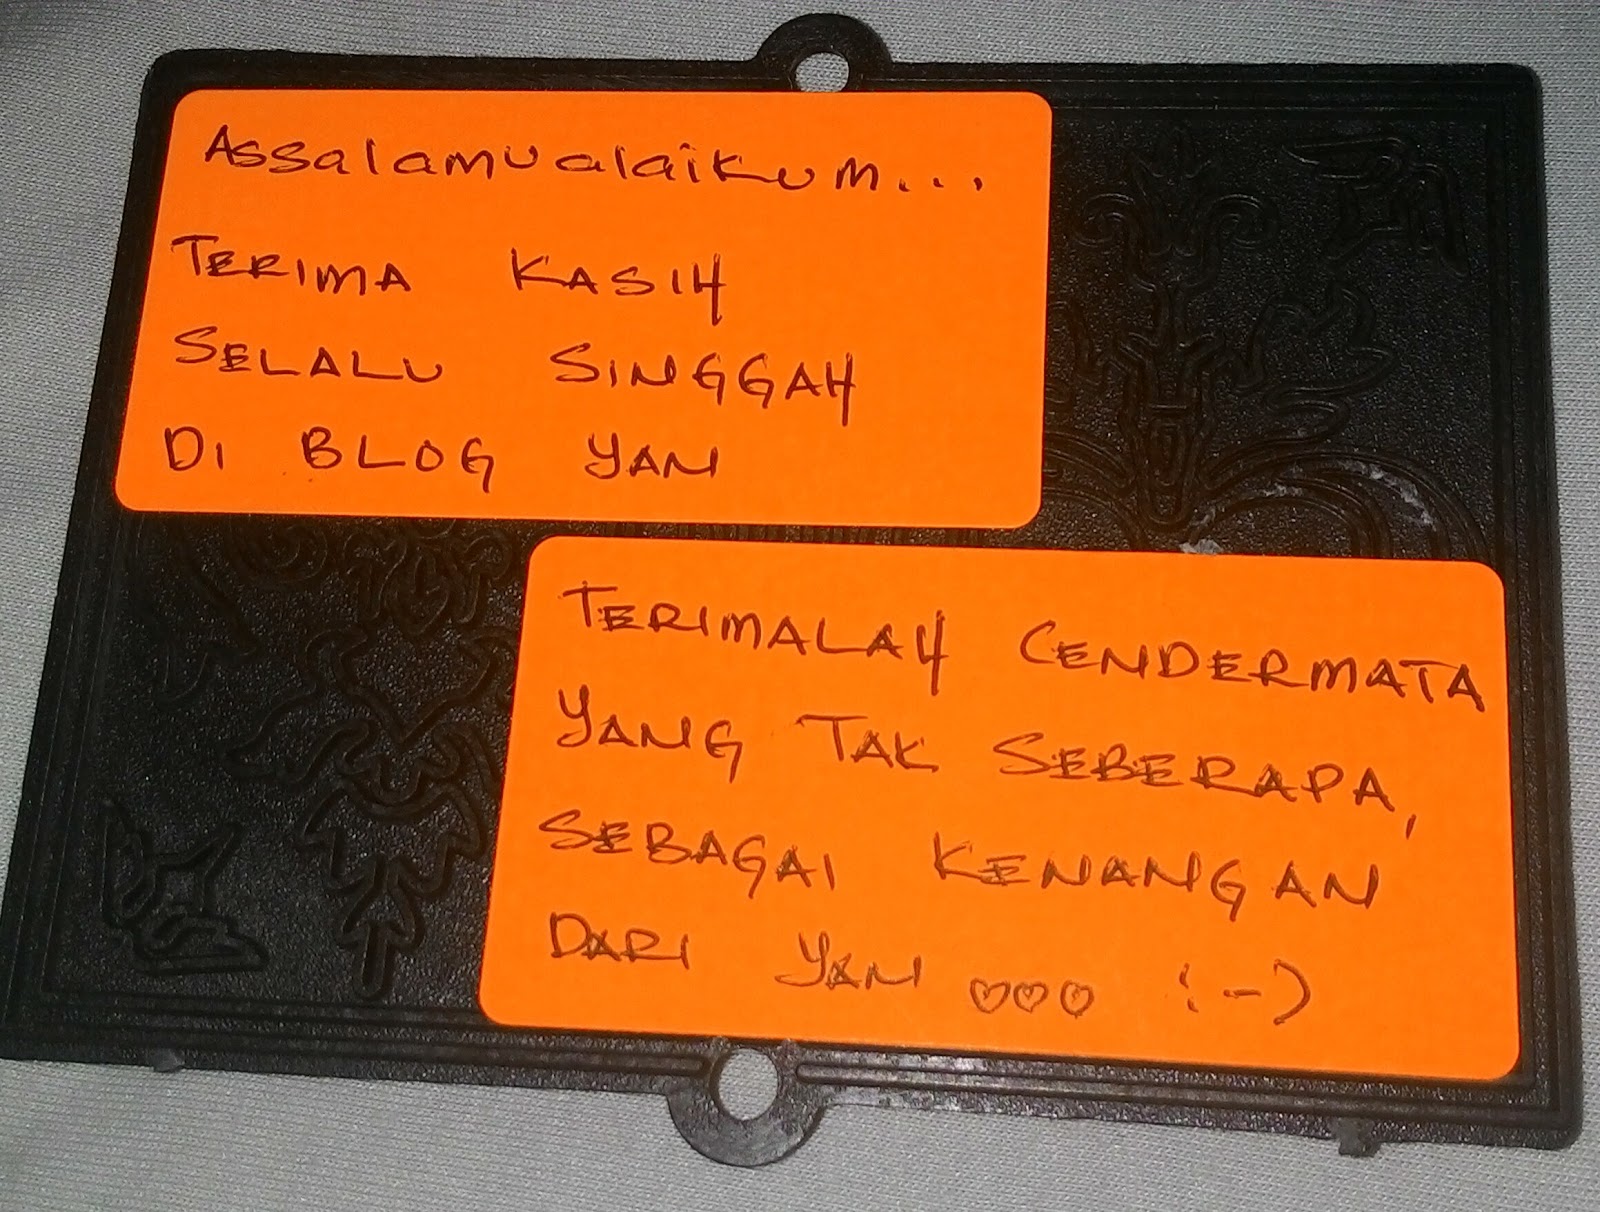 Assalamualaikum...
TERIMA KASIH
SELALU SINGGAH
DI BLOG YAN
TERIMALAH CENDERMATA
YANG TAK SEBERAPA,
SEBAGAI KENANGAN
DARI YAN ♡♡♡ :-)